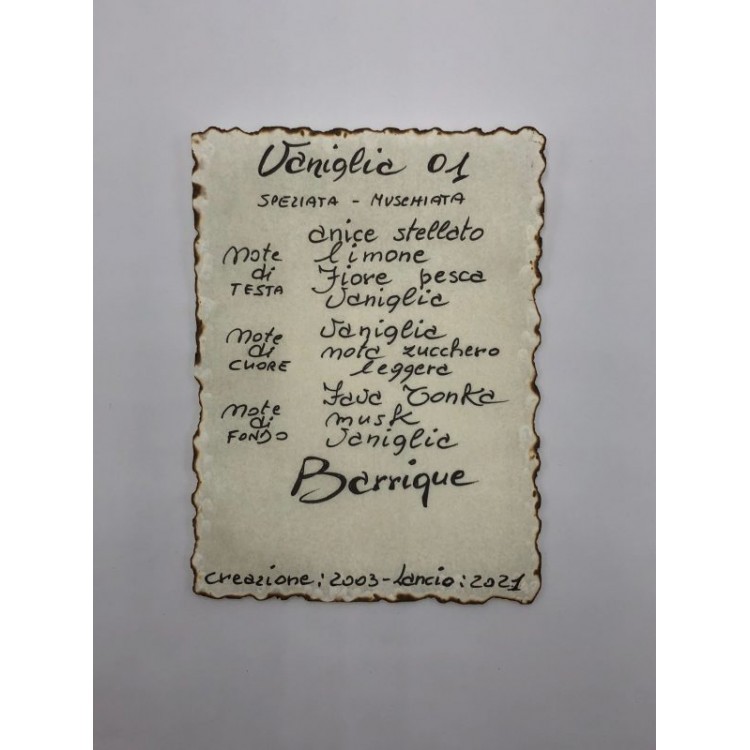 Vaniglia 01
SPEZIATA - MUSCHIATA
Note di TESTA
anice stellato
limone
Fiore pesca
Vaniglia
Note di CUORE
Vaniglia
nota zucchero
leggera
Note di FONDO
Fava Tonka
musk
Vaniglia
Barrique
creazione: 2003 - lancio: 2021